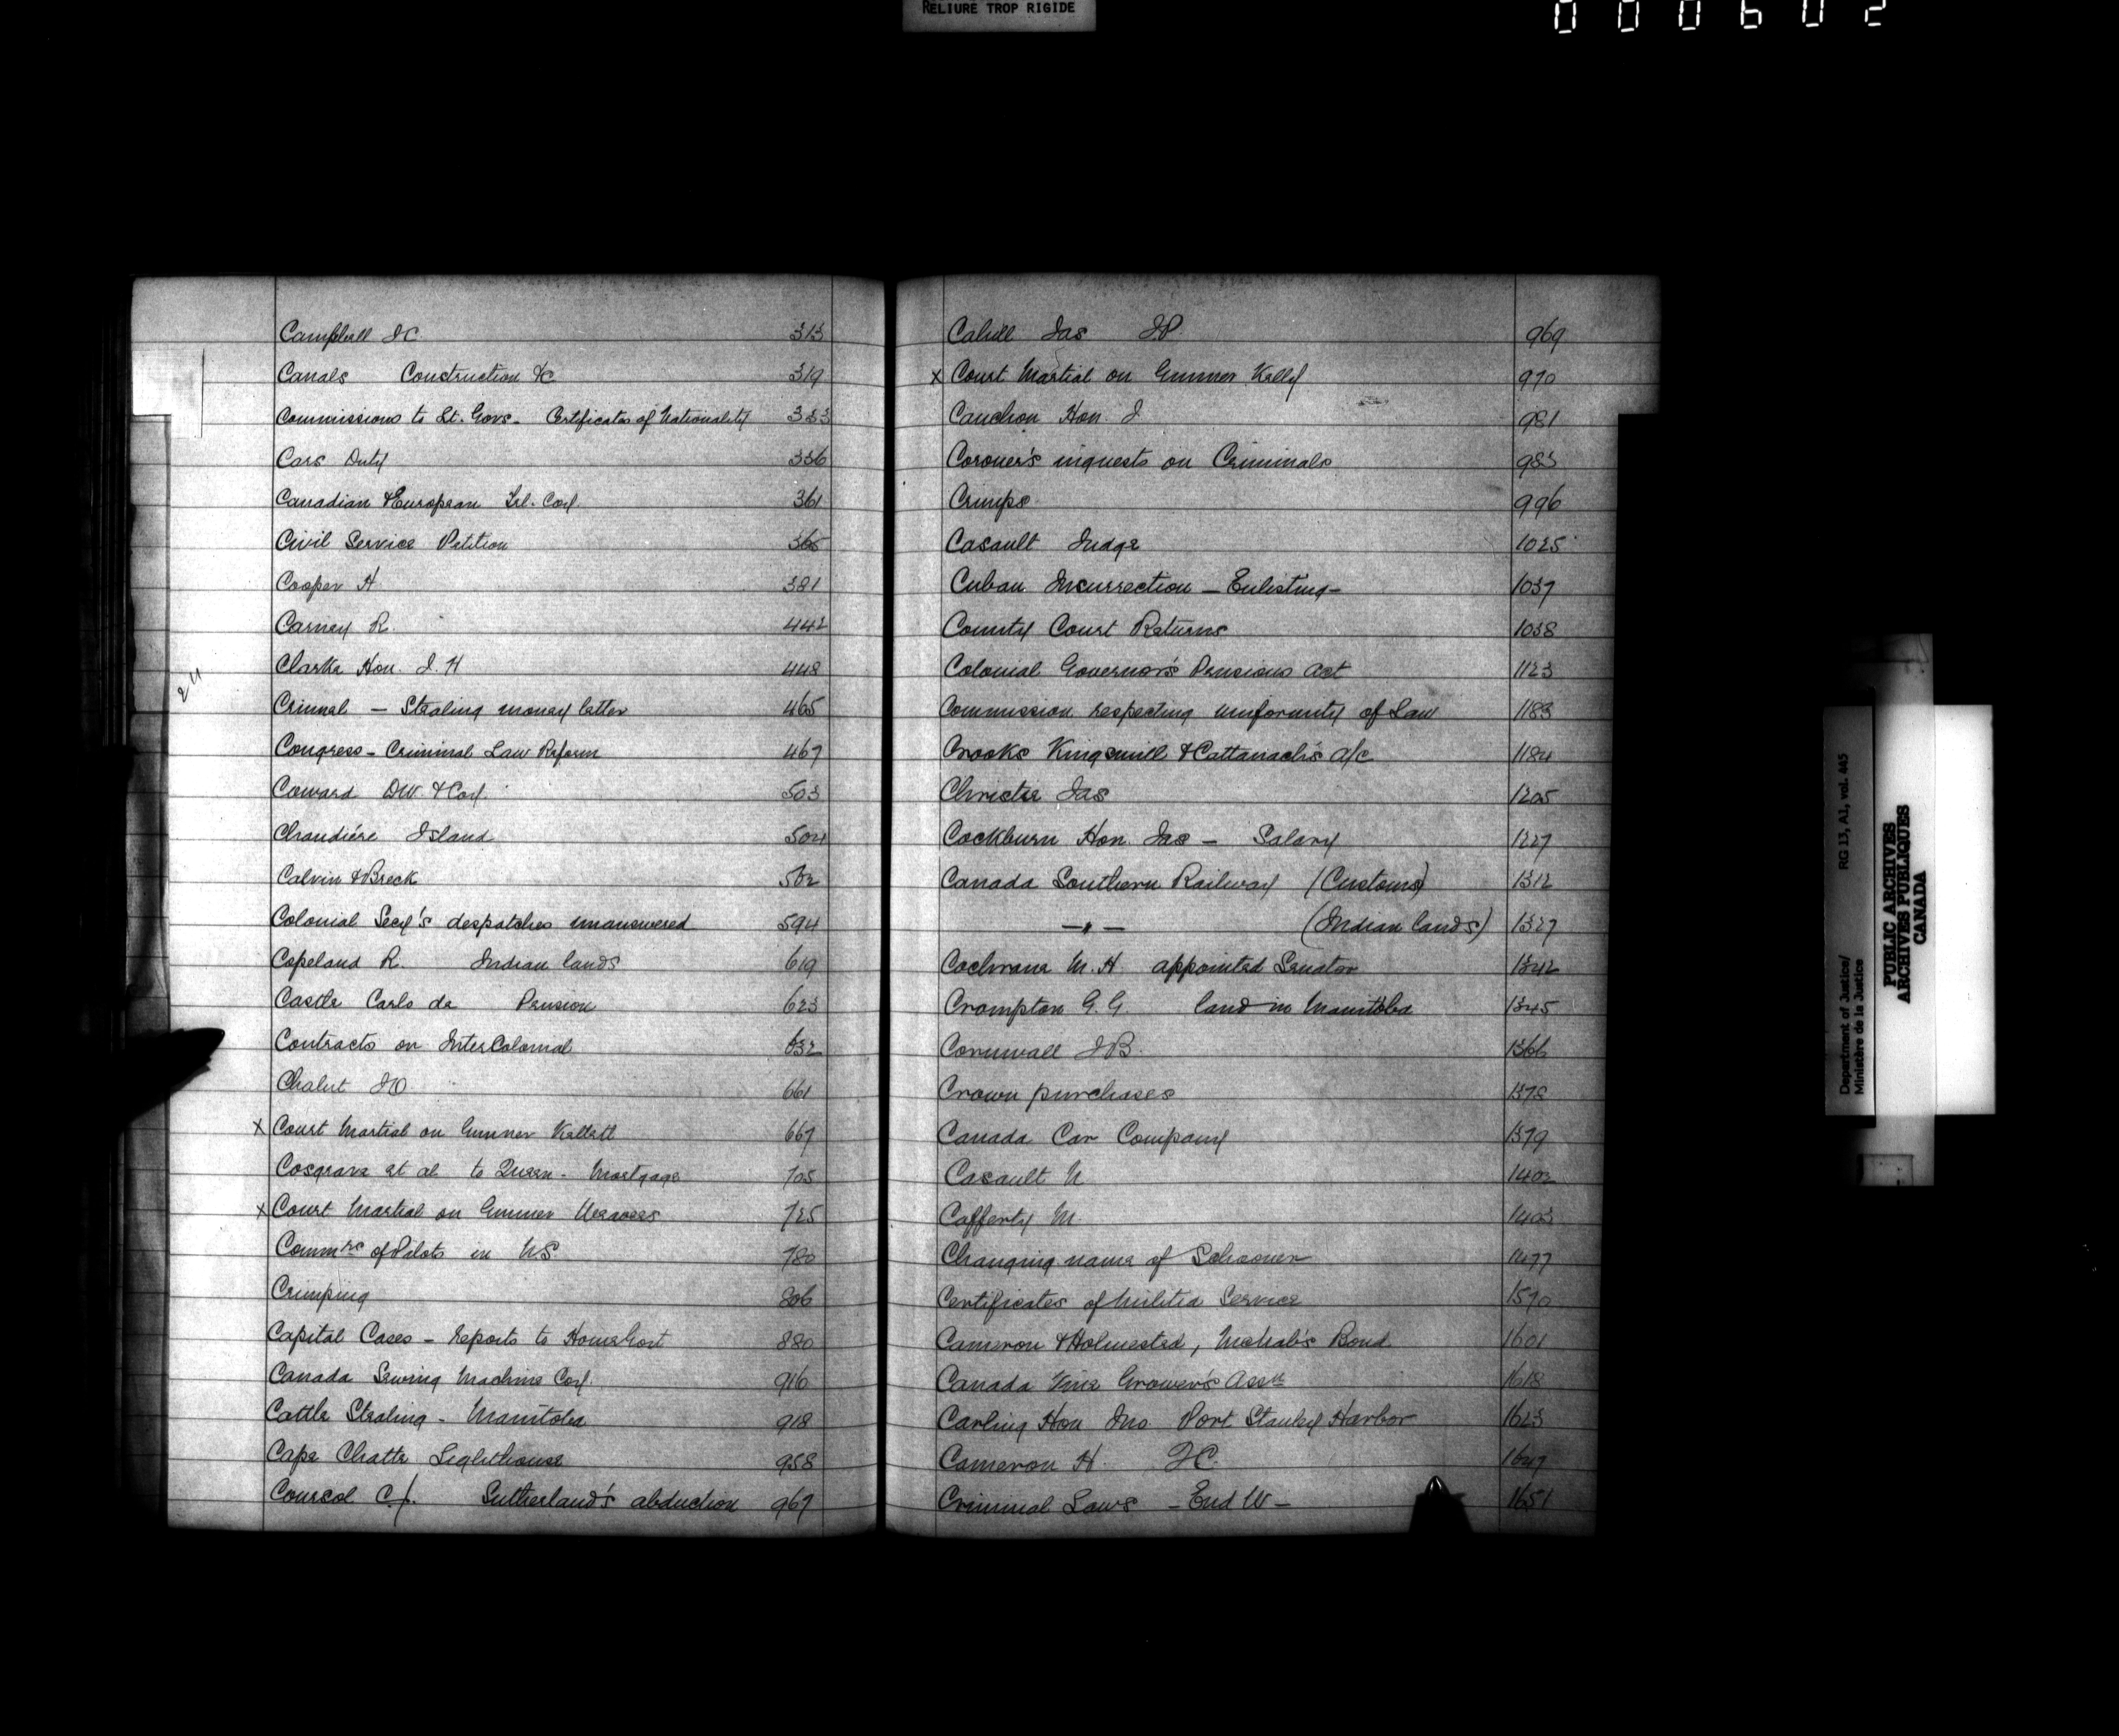 RELIURE TROP RIGIDE
000602
Campbell J C 313
Canals Construction &c 319
Commissions to Lt. Govs - Certificates of Nationality 333
Cars Duty 336
Canadian & European Tel. Coy. 361
Civil Service Petition 365
Cooper H 381
Carney R. 442
Clarke Hon. J. H 448
Criminal - Stealing money letter 465
Congress - Criminal Law Reform 467
Coward DW. & Coy. 503
Chaudiére Island 504
Calvin & Breck 502
Colonial Secy's despatches unanswered 594
Copeland R. Indian lands 619
Castle Carlo de Pension 623
Contracts on InterColonial 632
Chalut JO 661
x Court Martial on Gunner Kellett 667
Cosgrave et al to Queen - Mortgage 705
x Court Martial on Gunner 725
Commrs of Pilots in NS 780
Crimping 806
Capital Cases - reports to Home Govt 880
Canada Sewing Machine Coy. 916
Cattle Stealing - Manitoba 918
Cape Chatte Lighthouse 958
Coursol C J. Sutherland's abduction 967
24
Cahill Jas JP. 969
x Court Martial on Gunner Kelly 970
Cauchon Hon. J 981
Coroner's inquests on Criminals 983
Crimps 996
Casault Judge 1025
Cuban Insurrection - Enlisting - 1037
County Court Returns 1038
Colonial Governor's Pensions Act 1123
Commission respecting uniformity of Law 1183
Crooks Kingsmill & Cattanach's a/c 1184
Christie Jas 1205
Cockburn Hon. Jas - Salary 1227
Canada Southern Railway (Customs) 1312
—〃— (Indian lands) 1327
Cochrane M. H. appointed Senator 1342
Crompton G. G. land in Manitoba 1345
Cornwall JB. 1366
Crown purchases 1378
Canada Car Company 1379
Casault N 1402
Cafferty M. 1403
Changing name of Schooner 1477
Certificates of Militia Service 1570
Cameron & Holmested, McNab's Bond 1601
Canada Vine Grower's Assn 1618
Carling Hon Jno. Port Stanley Harbor 1623
Cameron H. JC. 1647
Criminal Laws - End W - 1651
Department of Justice/
Ministère de la Justice
RG 13, A1, vol. 445
PUBLIC ARCHIVES
ARCHIVES PUBLIQUES
CANADA